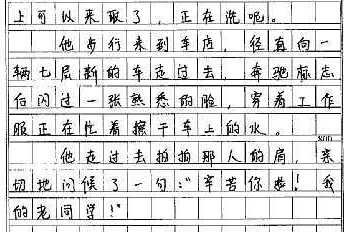 上可以来取了，正在洗呢。
他步行来到车店，径直向一
辆七层新的车走过去，奔驰标志
后闪过一张熟悉的脸，穿着工作
服正在忙着擦干车上的水。
他走过去拍拍那人的肩，亲
切地问候了一句："辛苦你啦！我
的老同学！"